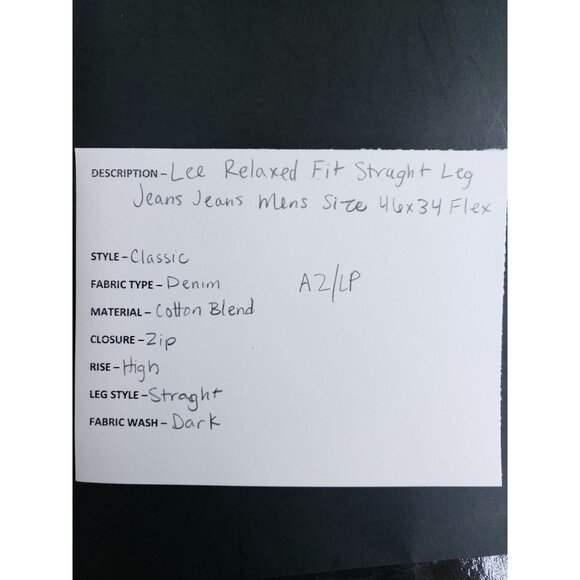 DESCRIPTION – Lee Relaxed Fit Straght Leg
Jeans Jeans Mens Size 46x34 Flex
STYLE – Classic
FABRIC TYPE – Denim
A2/LP
MATERIAL – Cotton Blend
CLOSURE – Zip
RISE – High
LEG STYLE – Straght
FABRIC WASH – Dark